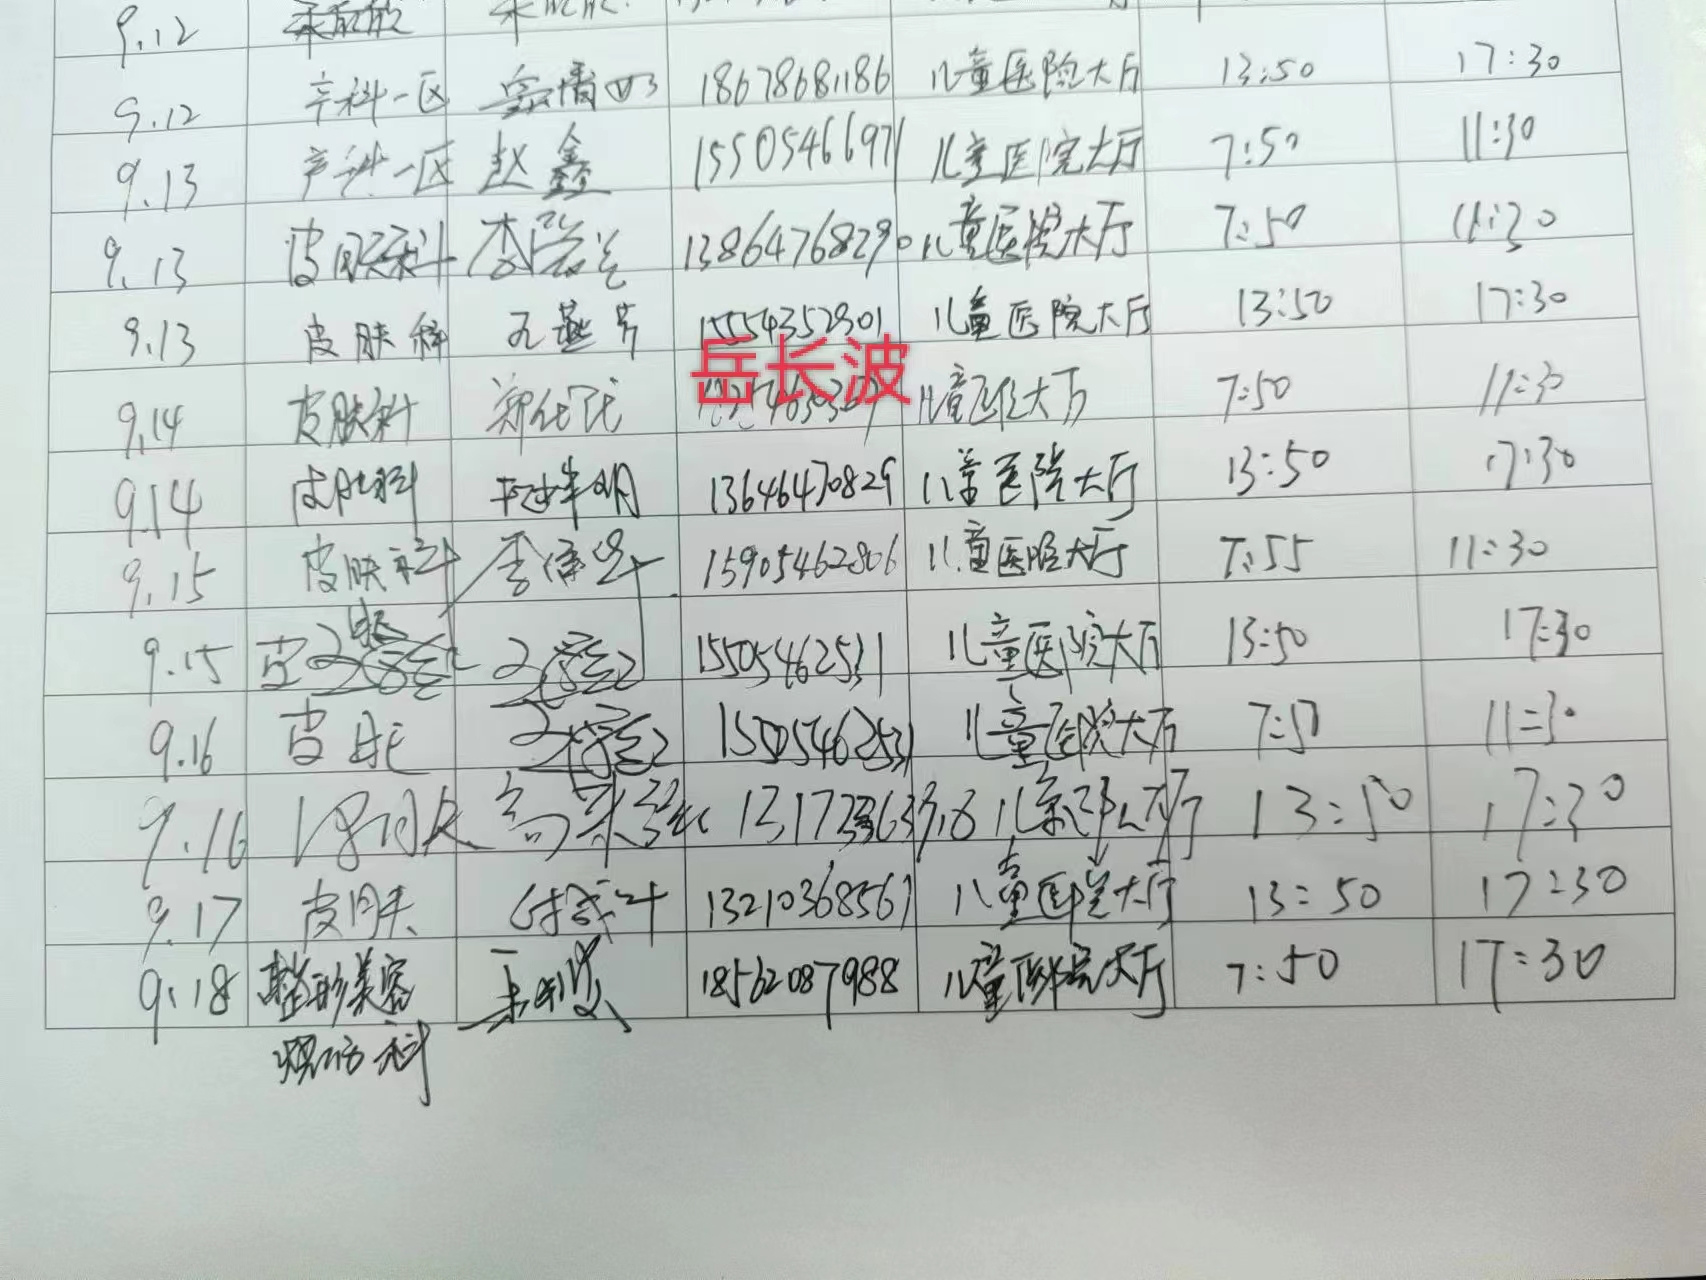 9.12
9.12 产科一区 18678681186 儿童医院大厅 13:50 17:30
9.13 产科一区 赵鑫 15505466971 儿童医院大厅 7:50 11:30
9.13 皮肤科 李 13864768290 儿童医院大厅 7:50 11:30
9.13 皮肤科 孔燕芳 15554352901 儿童医院大厅 13:50 17:30
岳长波
9.14 皮肤科 儿童医院大厅 7:50 11:30
9.14 皮肤科 13646470829 儿童医院大厅 13:50 17:30
9.15 皮肤科 李 15905462806 儿童医院大厅 7:55 11:30
9.15 皮 15505462531 儿童医院大厅 13:50 17:30
9.16 皮肤 15505462531 儿童医院大厅 7:50 11:30
9.16 儿童医院大厅 13:50 17:30
9.17 皮肤 13210368567 儿童医院大厅 13:50 17:30
9.18 整形美容 18562087988 儿童医院大厅 7:50 17:30
烧伤科